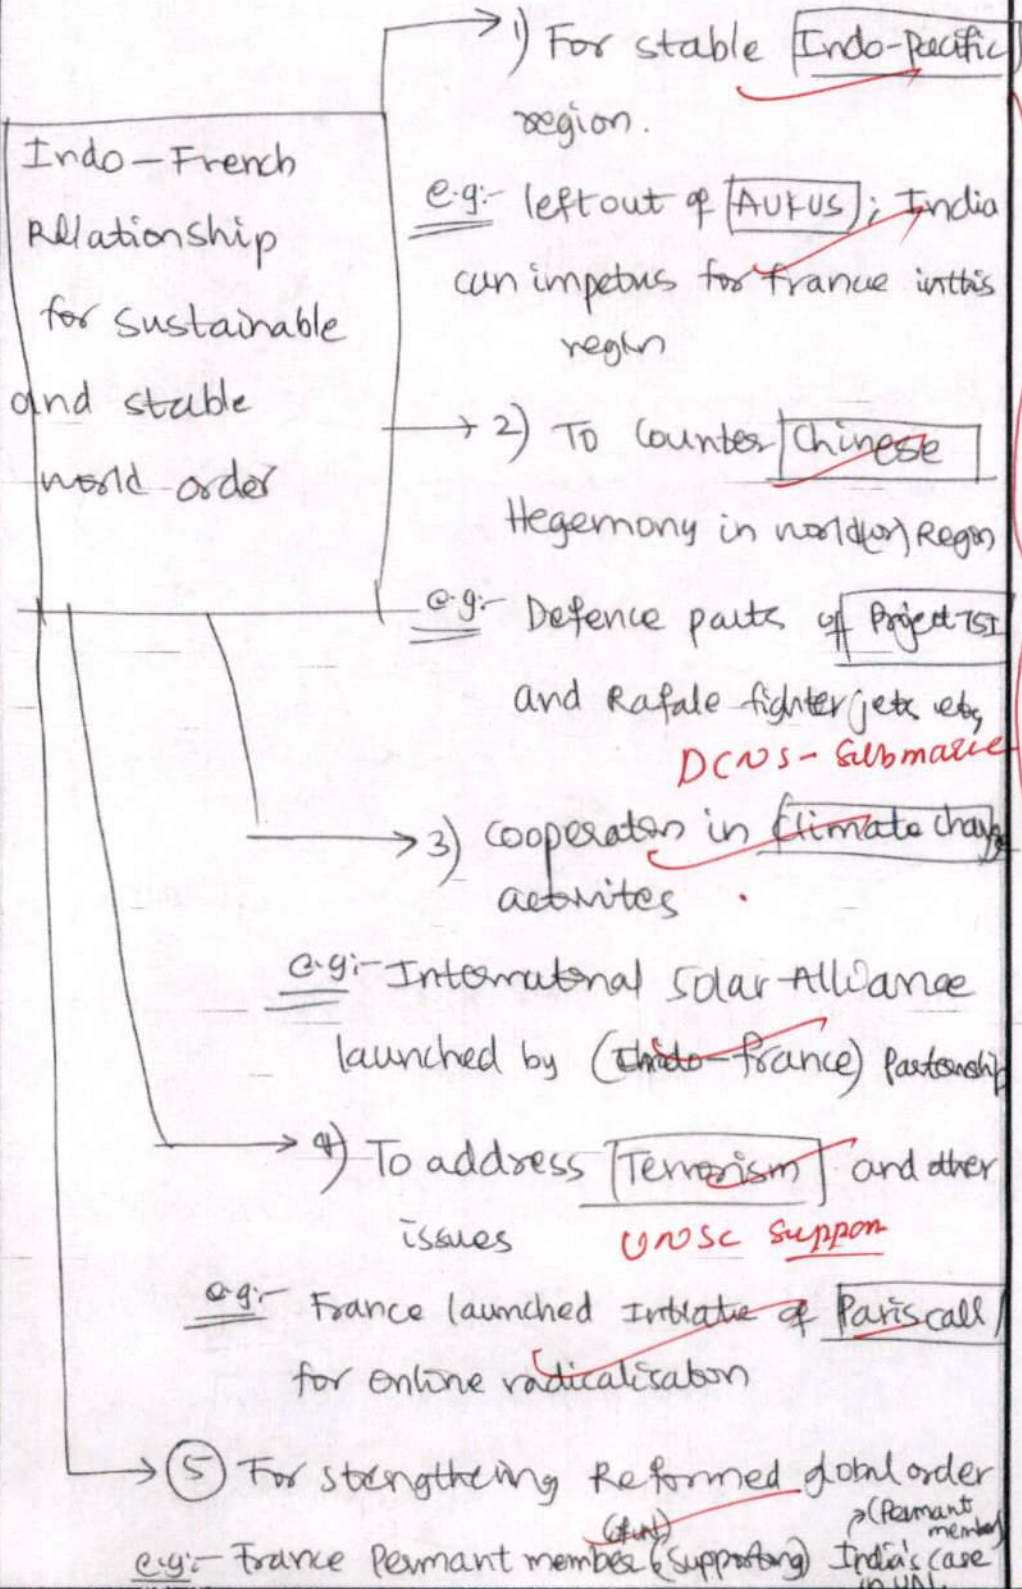 Indo-French
Relationship
for sustainable
and stable
world order
1) For stable Indo-pacific
region.
e.g:- left out of AUKUS; India
can impetus for france in this
region
2) To Counter Chinese
Hegemony in world(or) Region
e.g:- Defence parts of Project 75I
and Rafale fighter jets etc,
DCNS - Submarine
3) cooperation in climate change
activites
e.g:- International Solar Alliance
launched by (Indo-france) Partnership
4) To address Terrorism and other
issues
UNSC support
e.g:- France launched Intiate of Paris call
for online radicalisation
5 For strengtheing Reformed global order
e.g:- France Permant member (of UN) (supporting) India's case
(Permant
member
in UN)